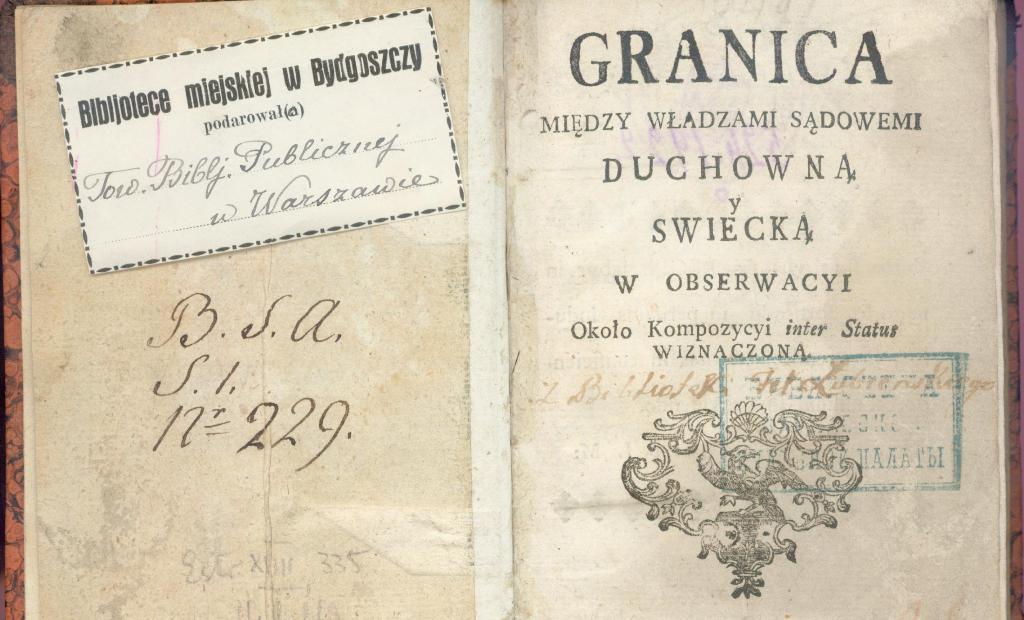 Bibljotece miejskiej w Bydgoszczy
podarował(a)
Tow. Biblj. Publicznej
w Warszawie
B. S. A.
S. 1.
Nr 229.
Estr. XVIII 335
GRANICA
MIĘDZY WŁADZAMI SĄDOWEMI
DUCHOWNĄ
y
SWIECKĄ
W OBSERWACYI
Około Kompozycyi inter Status
WIZNACZONĄ.
Z Bibliotek
ПАЛАТЫ